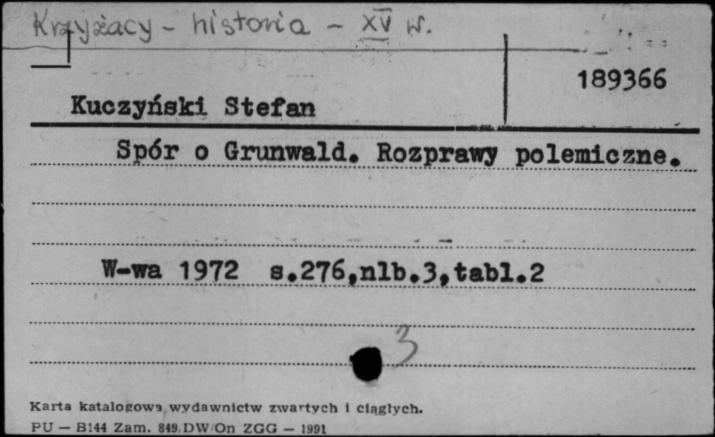 Krzyżacy - historia - XV w.
189366
Kuczyński Stefan
Spór o Grunwald. Rozprawy polemiczne.
W-wa 1972 s.276,nlb.3,tabl.2
3
Karta katalogowa wydawnictw zwartych i ciągłych.
PU — B144 Zam. 849 DW/On ZGG — 1991